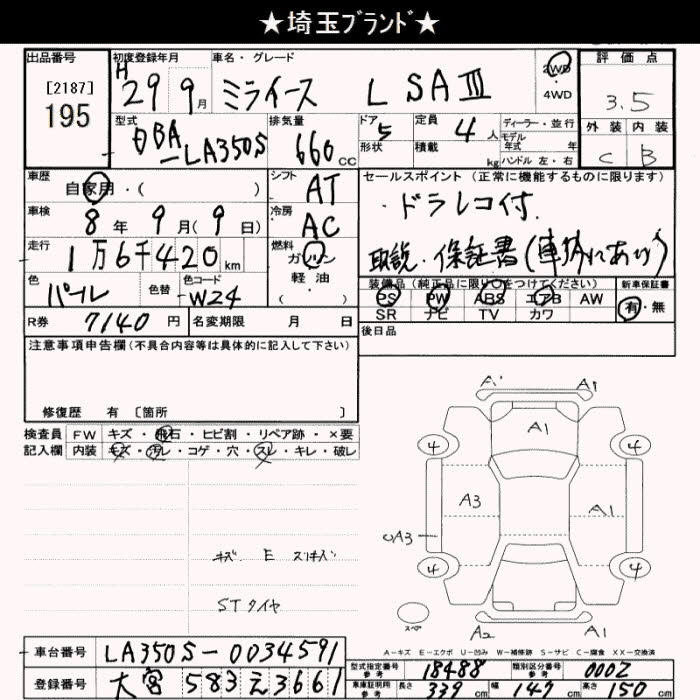 ★埼玉ﾌﾞﾗﾝﾄﾞ★
出品番号
[2187]
195
初度登録年月
H29 9月
車名・グレード
ミライース L SAⅢ
2WD
4WD
評価点
3.5
外装 内装
C B
型式
DBA
-LA350S
排気量
660cc
ドア
5
形状
定員
4人
積載
kg
ディーラー・並行
モデル
年式 年
ハンドル 左・右
車歴
自家用・( )
シフト
AT
車検
8年 9月(9日)
冷房
AC
走行
1万6千420km
燃料
ガソリン
軽・油
( )
色
パール
色替
色コード
W24
R券 7140円
名変期限 月 日
セールスポイント (正常に機能するものに限ります)
・ドラレコ付.
取説・保証書(車外にあり)
装備品(純正品に限り○をつけてください)
PS PW ABS エアB AW
SR ナビ TV カワ
新車保証書
有・無
後日品
注意事項申告欄(不具合内容等は具体的に記入して下さい)
修復歴 有 〔箇所 〕
検査員
記入欄
FW キズ・飛石・ヒビ割・リペア跡・×要
内装 キズ・汚レ・コゲ・穴・スレ・キレ・破レ
キズ. E スリキズ
STタイヤ
A1
A1
A1
4 4
A3 A1
A3
4 4
スペア
A2 A1
A-キズ E-エクボ U-凹み W-補修跡 S-サビ C-腐食 XX-交換済
車台番号 LA350S-0034591
登録番号 大宮 583 え 3661
型式指定番号
参考
18488
類別区分番号
参考
0002
車庫証明用
参考
長さ 339cm 幅 147cm 高さ 150cm